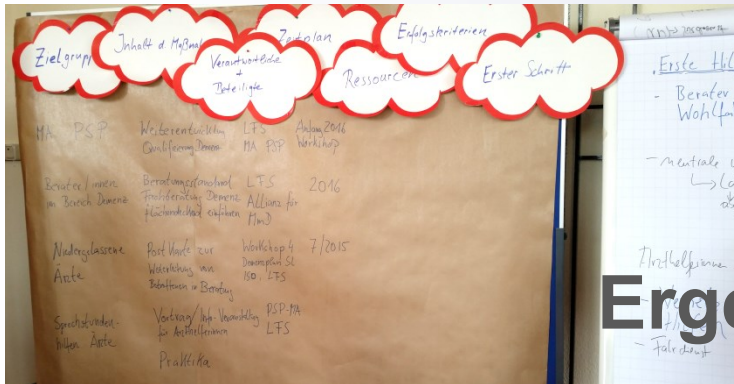 Zielgrupp
Inhalt d. Maßnah
Verantwortliche
+
Beteiligte
Zeitplan
Ressourcen
Erfolgskriterien
Erster Schritt
MA PSP
Weiterentwicklung
Qualifizierung Demenz
LFS
MA PSP
Anfang 2016
Workshop
Berater/innen
im Bereich Demenz
Beratungsstandard
Fachberatung Demenz
flächendeckend einführen
LFS
Allianz für
MmD
2016
Niedergelassene
Ärzte
Postkarte zur
Weiterleitung von
Betroffenen in Beratung
Workshop 4
Demenzplan SL
ISO, LFS
7/2015
Sprechstunden-
hilfen Ärzte
Vortrag/Info-Veranstaltung
für Arzthelferinnen
PSP-MA
LFS
Praktika
Erste Hil
- Berater
Wohlfa
- neutrale
Arzthelferinnen
- Fahrdienst
Erge